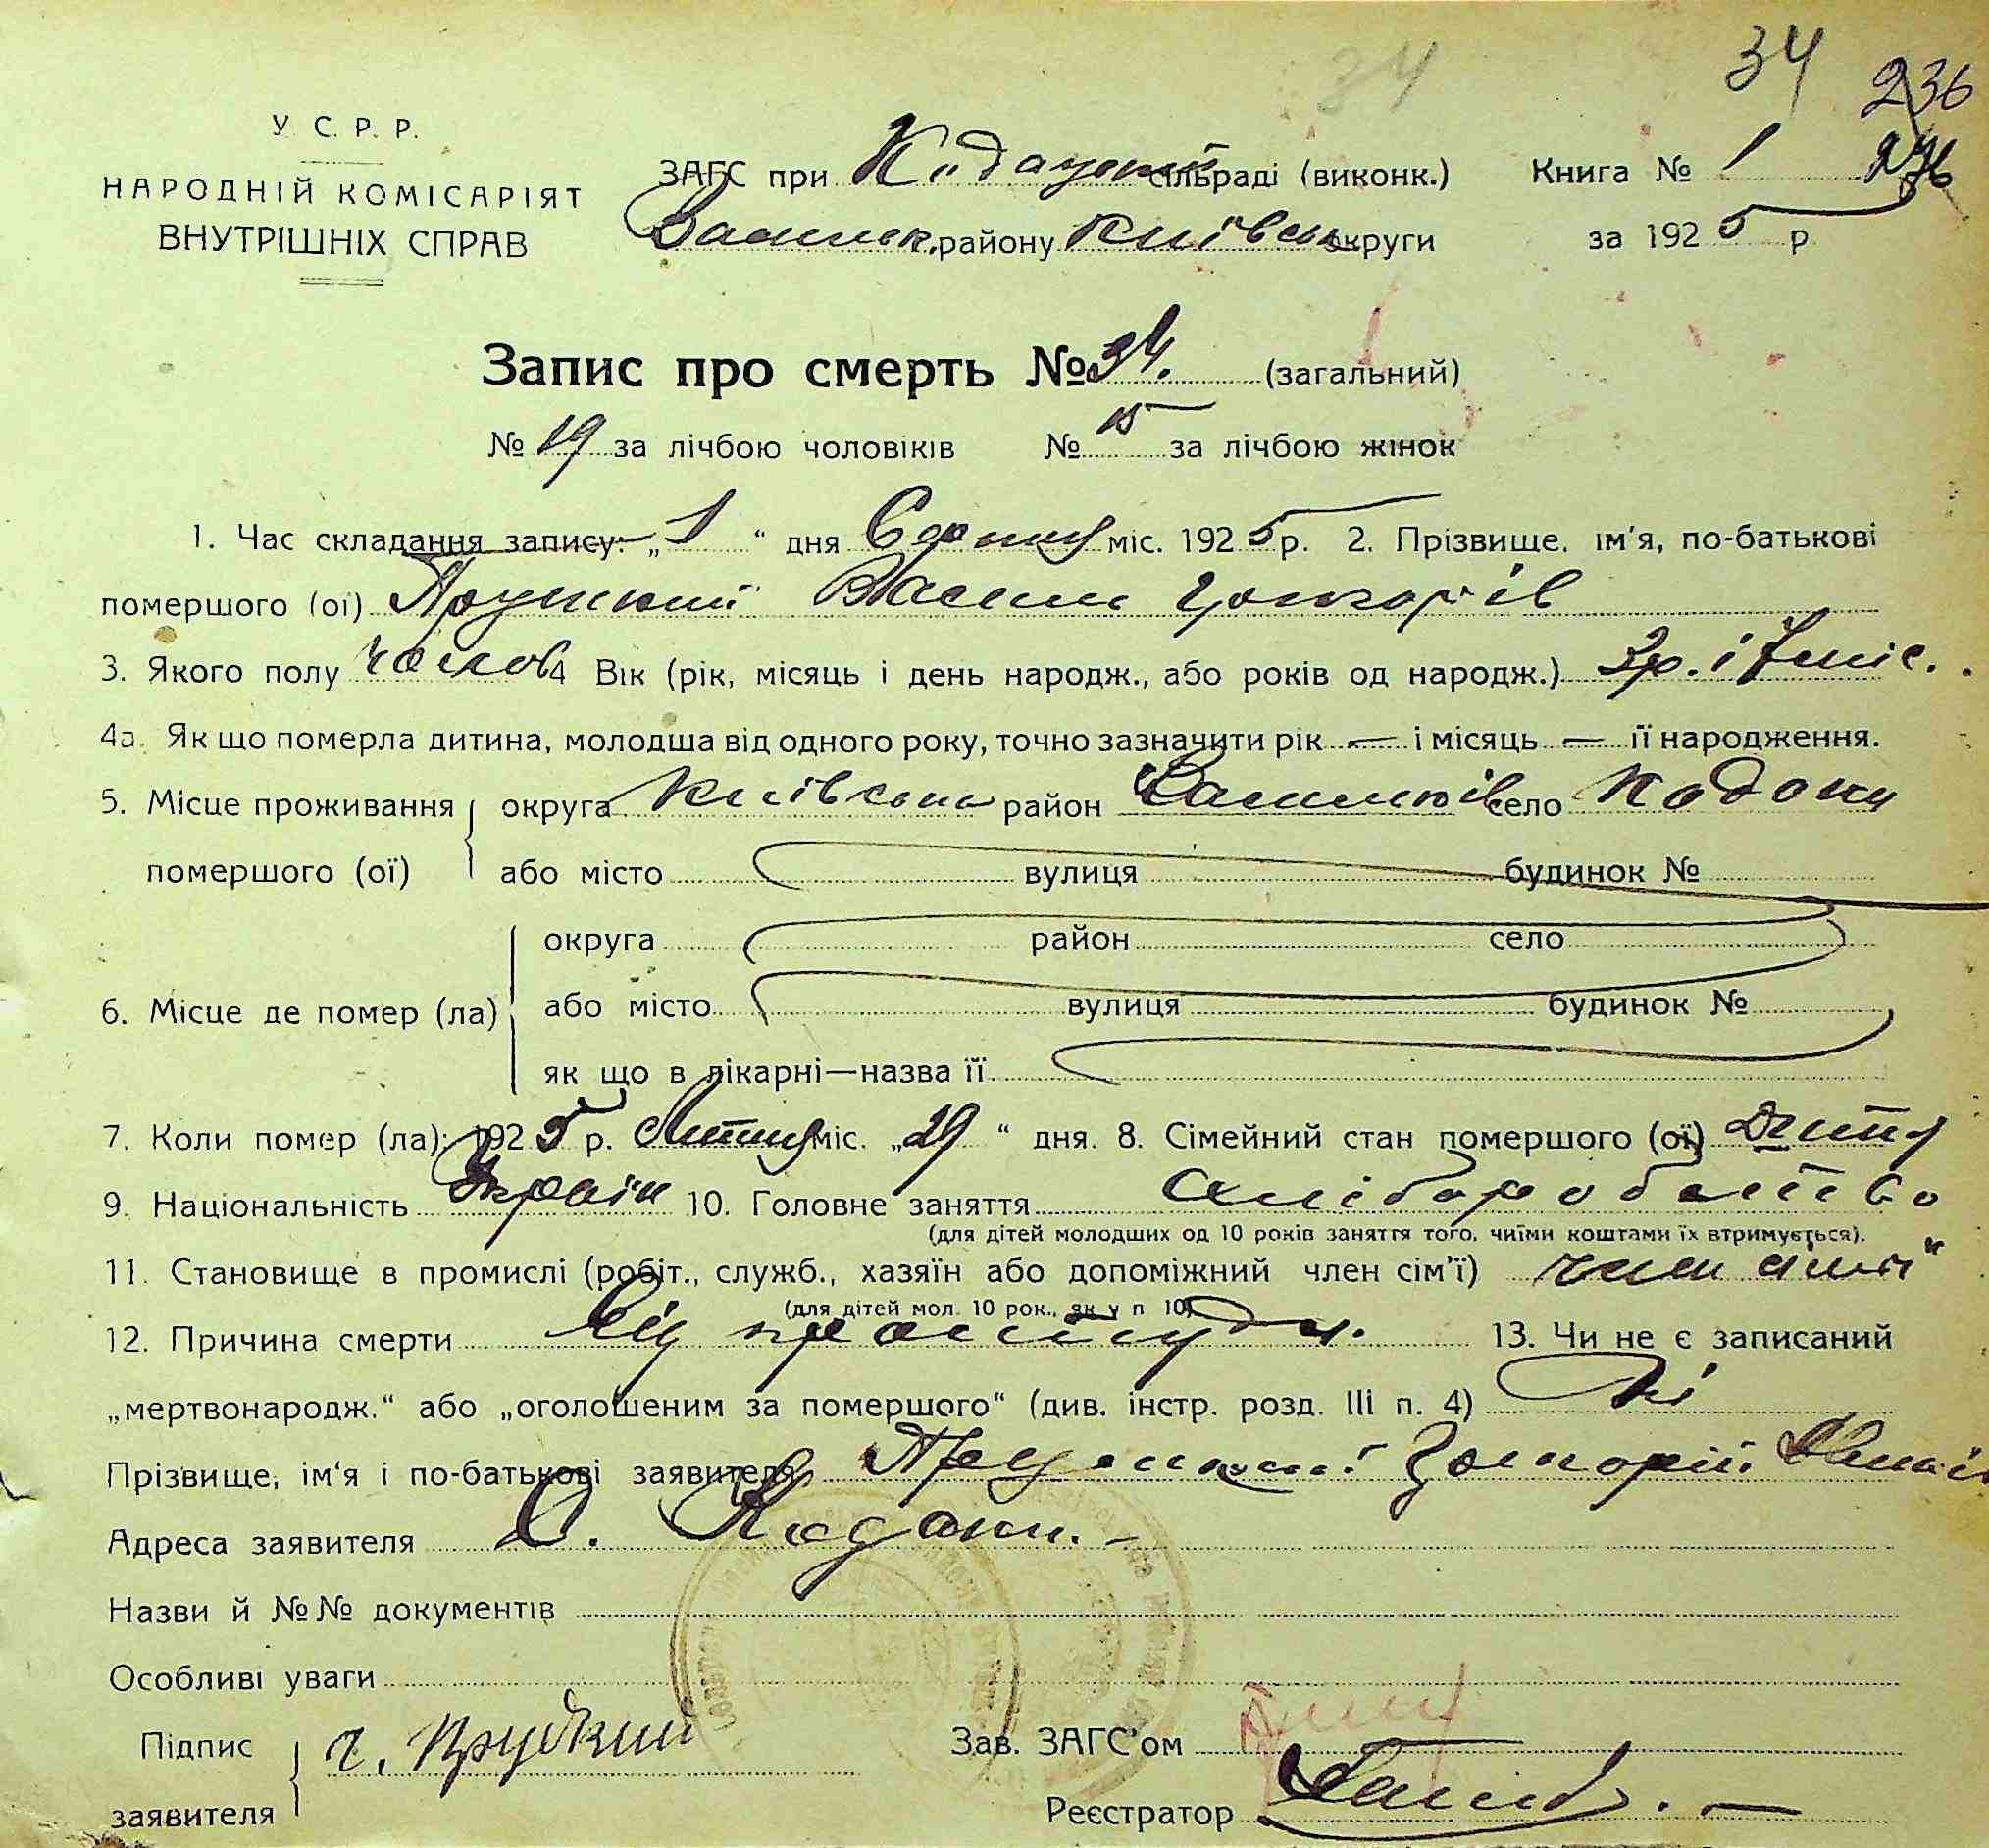 34
34
236
У. С. Р. Р.
НАРОДНІЙ КОМІСАРІЯТ
ВНУТРІШНІХ СПРАВ
ЗАГС при сільраді (виконк.)
району Київськ округи
Книга № 1
за 1925 р
Запис про смерть № 34. (загальний)
№ 19 за лічбою чоловіків № 15 за лічбою жінок
1. Час складання запису: „1“ дня Серпня міс. 1925 р. 2. Прізвище, ім'я, по-батькові
помершого (ої) Василь
3. Якого полу чолов. 4 Вік (рік, місяць і день народж., або років од народж.) 2р. і 7 міс.
4а. Як що померла дитина, молодша від одного року, точно зазначити рік — і місяць — її народження.
5. Місце проживання округа Київська район село Кодаки
помершого (ої) або місто вулиця будинок №
округа район село
6. Місце де помер (ла) або місто вулиця будинок №
як що в лікарні—назва її
7. Коли помер (ла): 1925 р. Липня міс. „29“ дня. 8. Сімейний стан помершого (ої) Дитина
9. Національність Україн 10. Головне заняття Хліборобство
(для дітей молодших од 10 років заняття того, чиїми коштами їх втримується).
11. Становище в промислі (робіт., служб., хазяїн або допоміжний член сім'ї) член сімї
(для дітей мол. 10 рок., як у п 10)
12. Причина смерти Від простуди. 13. Чи не є записаний
„мертвонародж.“ або „оголошеним за помершого“ (див. інстр. розд. III п. 4) Ні
Прізвище, ім'я і по-батькові заявителя Григорій
Адреса заявителя С. Кодаки. –
Назви й №№ документів
Особливі уваги
Підпис
заявителя
Г.
Зав. ЗАГС'ом
Реєстратор